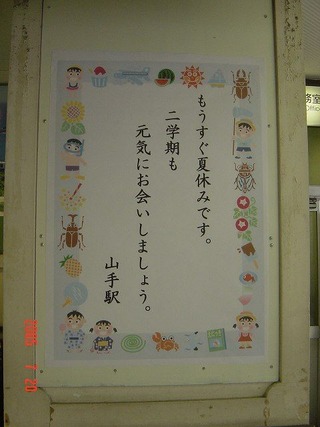 もうすぐ夏休みです。
二学期も
元気にお会いしましょう。
山手駅
務室
Office